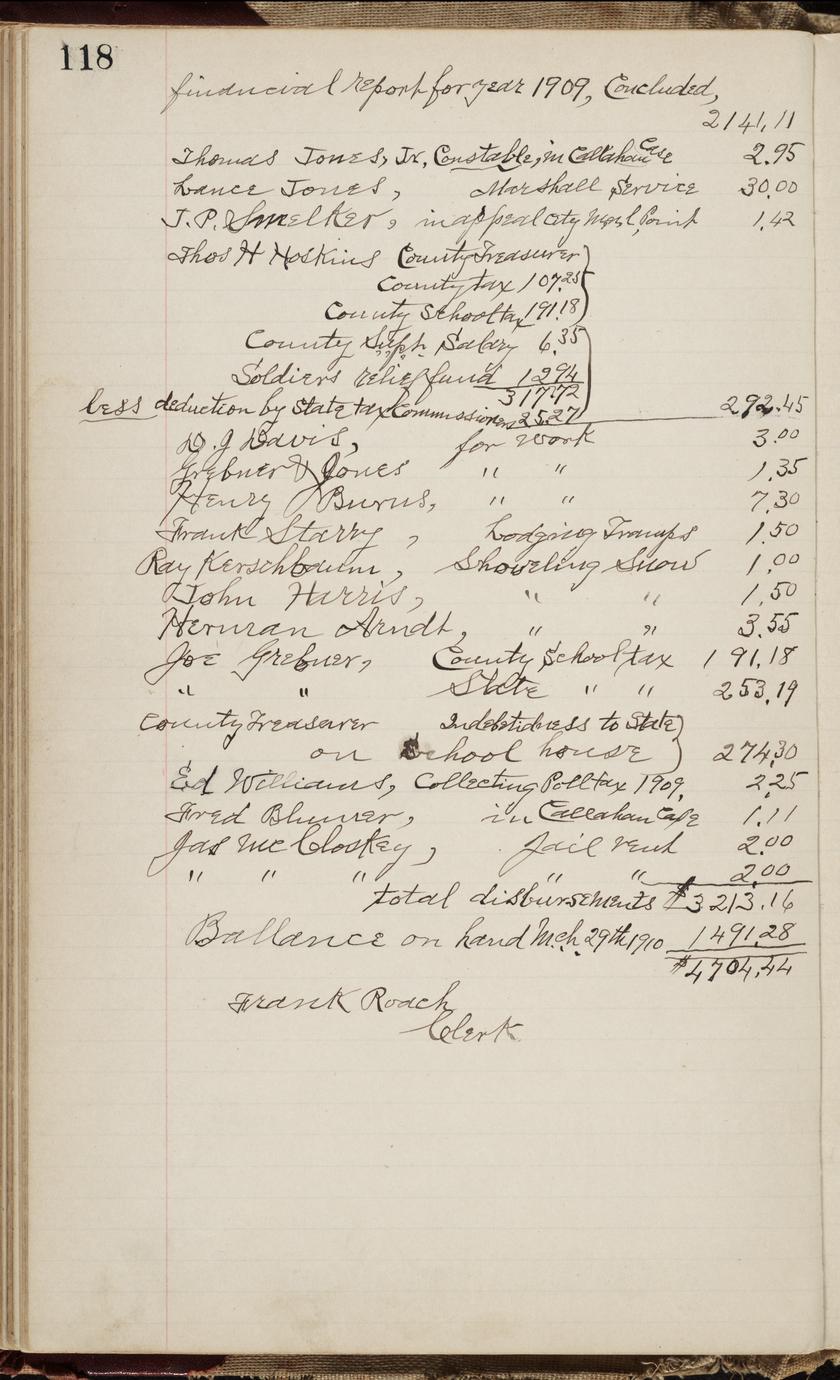 118
financial report for year 1909, Concluded,
2141,11
Thomas Jones, Jr, Constable, in Callahan Case 2.95
Lance Jones, Marshall Service 30.00
J.P. Smelker, in appeal City Point 1,42
Thos H Hoskins County Treasurer
County tax 107.25
County School tax 191.18
County Supt. Salary 6.35
Soldiers relief fund 12 94
317.72
less deduction by State tax Commissioners 25.27 292.45
D. J Davis, for work 3.00
Grebner & Jones " " 1.35
Henry Burns, " " 7.30
Frank Starry, Lodging Tramps 1.50
Ray Kerschbaum, Shoveling Snow 1.00
John Harris, " " 1.50
Herman Arndt, " " 3.55
Joe Grebner, County School tax 191.18
" " State " " 253,19
County Treasurer Indebtidness to State
on School house 274,30
Ed Williams, Collecting Poll tax 1909, 2.25
Fred in Callahan Case 1.11
Jas McCloskey, Jail rent 2.00
" " " " " 2.00
total disbursements $3213.16
Ballance on hand Mch. 29th 1910 1491.28
$4704,44
Frank Roach
Clerk